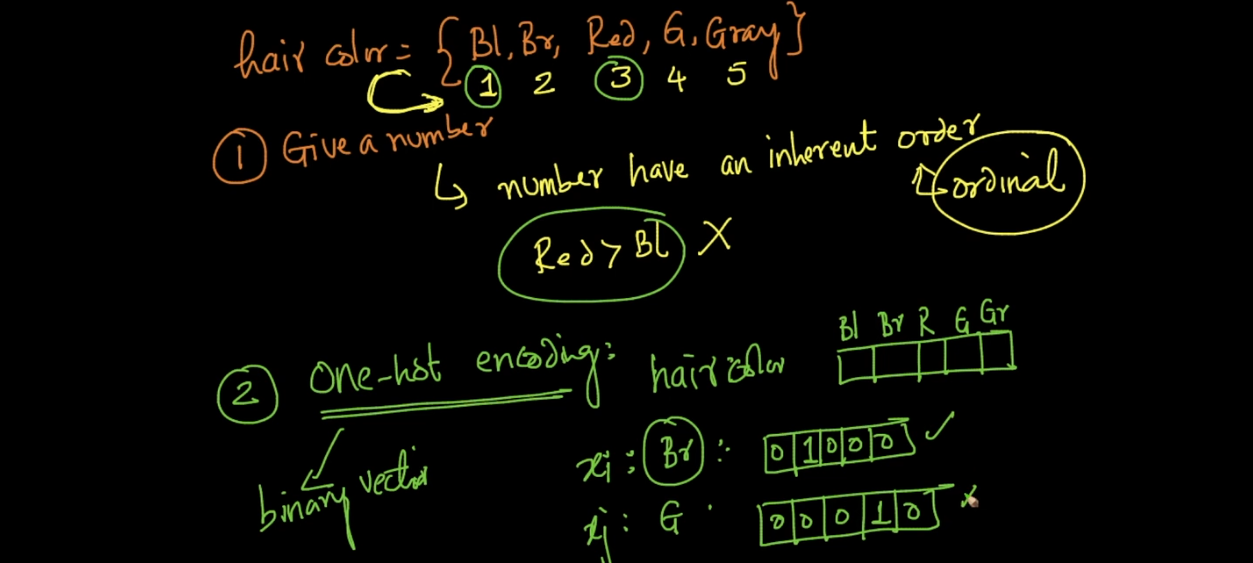 hair color = { Bl, Br, Red, G, Gray }
1 2 3 4 5
1 Give a number
↳ number have an inherent order
ordinal
Red > Bl X
Bl Br R G Gr
2 One-hot encoding: hair color
binary vector
xi : Br : 0 1 0 0 0 ✓
xj : G . 0 0 0 1 0